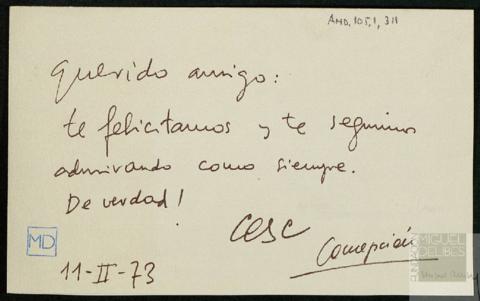 AMD, 105, 1, 311
Querido amigo:
te felicitamos y te seguimos
admirando como siempre.
De verdad!
Cesc
Concepción
MD
11-II-73
FUNDACIÓN
MIGUEL
DELIBES